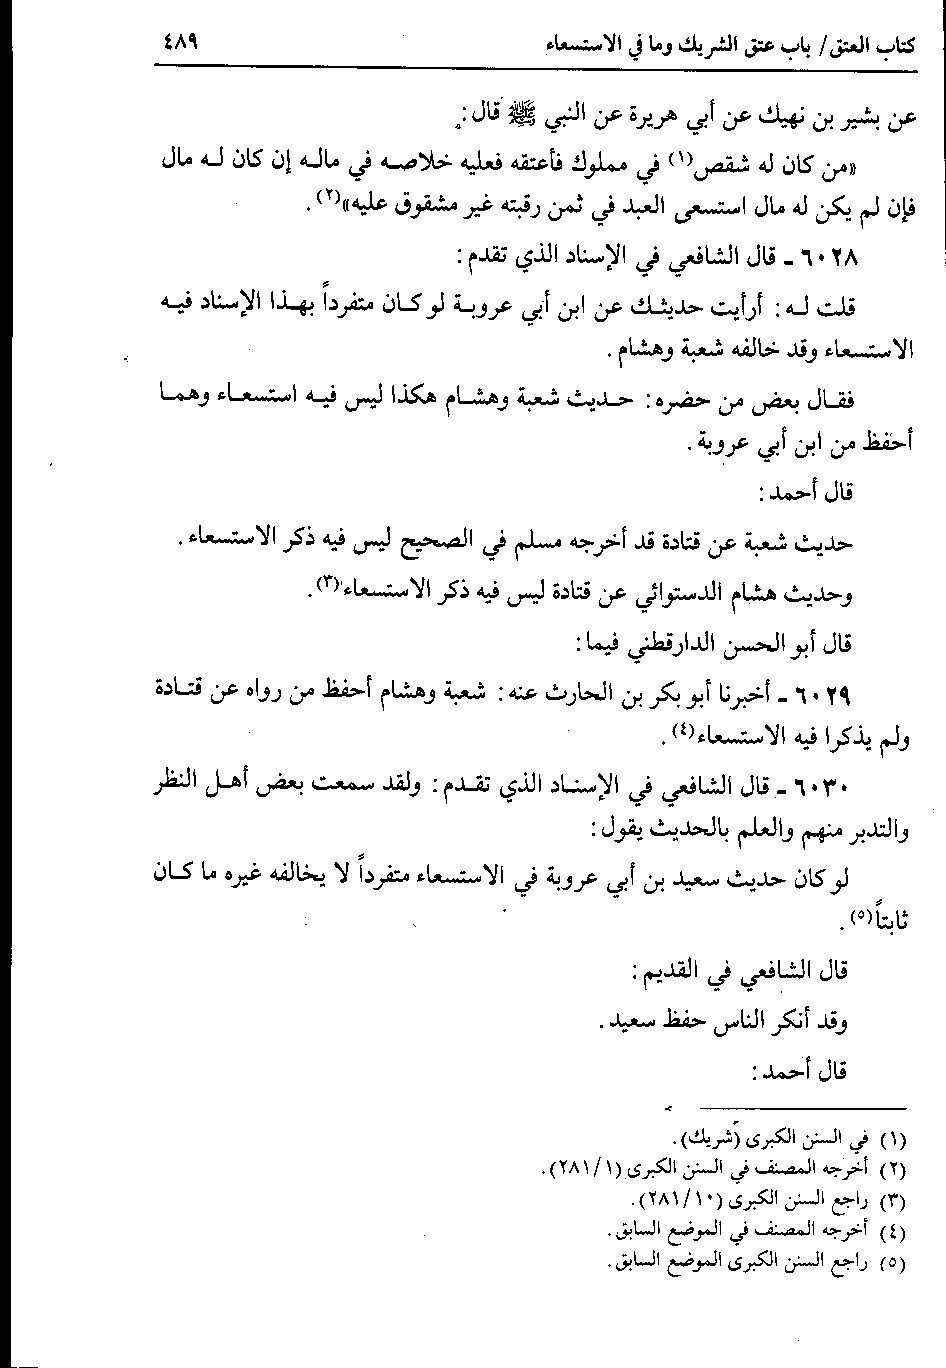 كتاب العتق / باب عتق الشريك وما في الاستسعاء ٤٨٩
عن بشير بن نهيك عن أبي هريرة عن النبي ﷺ قال:
«من كان له شقص(١) في مملوك فأعتقه فعليه خلاصه في ماله إن كان له مال
فإن لم يكن له مال استسعى العبد في ثمن رقبته غير مشقوق عليه»(٢).
٦٠٢٨ - قال الشافعي في الإسناد الذي تقدم:
قلت له: أرأيت حديثك عن ابن أبي عروبة لو كان متفرداً بهذا الإسناد فيه
الاستسعاء وقد خالفه شعبة وهشام.
فقال بعض من حضره: حديث شعبة وهشام هكذا ليس فيه استسعاء وهما
أحفظ من ابن أبي عروبة.
قال أحمد:
حديث شعبة عن قتادة قد أخرجه مسلم في الصحيح ليس فيه ذكر الاستسعاء.
وحديث هشام الدستوائي عن قتادة ليس فيه ذكر الاستسعاء(٣).
قال أبو الحسن الدارقطني فيما:
٦٠٢٩ - أخبرنا أبو بكر بن الحارث عنه: شعبة وهشام أحفظ من رواه عن قتادة
ولم يذكرا فيه الاستسعاء(٤).
٦٠٣٠ - قال الشافعي في الإسناد الذي تقدم: ولقد سمعت بعض أهل النظر
والتدبر منهم والعلم بالحديث يقول:
لو كان حديث سعيد بن أبي عروبة في الاستسعاء متفرداً لا يخالفه غيره ما كان
ثابتاً(٥).
قال الشافعي في القديم:
وقد أنكر الناس حفظ سعيد.
قال أحمد:
(١) في السنن الكبرى (شريك).
(٢) أخرجه المصنف في السنن الكبرى (٢٨١/١).
(٣) راجع السنن الكبرى (٢٨١/١٠).
(٤) أخرجه المصنف في الموضع السابق.
(٥) راجع السنن الكبرى الموضع السابق.